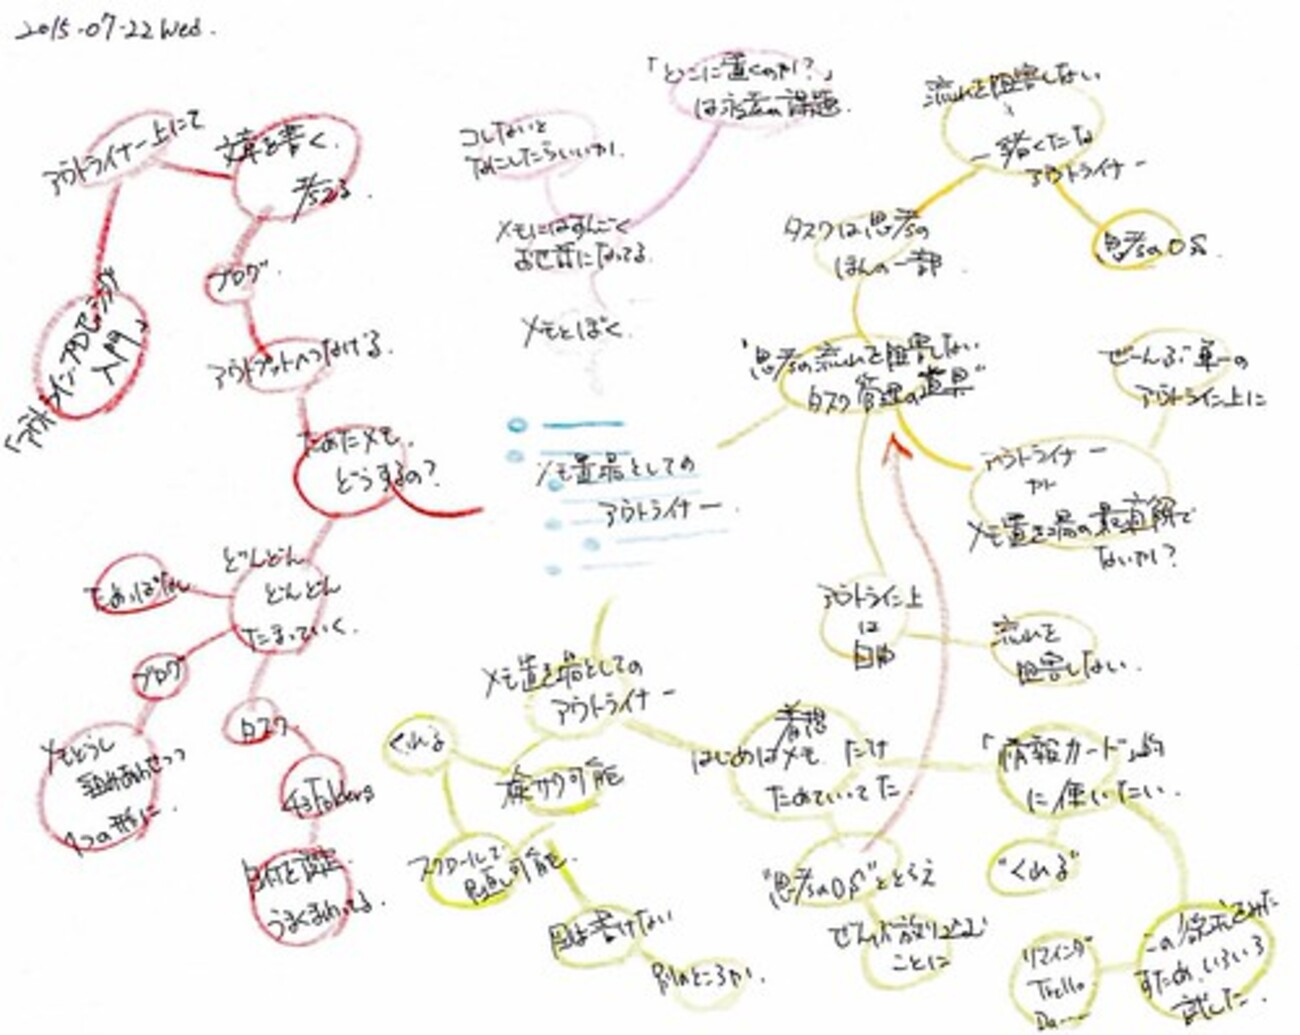 2015-07-22 Wed.
「どこに置くのか?」
は永遠の課題.
コレないと
なにしたらいいか.
メモにはすんごく
お世話になってる.
メモとぼく.
メモ置場としての
アウトライナー.
アウトライナー上にて
文章を書く.
考える
「アウトライン・プロセッシング
入門」
ブログ.
アウトプットへつなげる.
ためたメモ.
どうするの?
どんどん
どんどん
たまっていく.
ためっぱなし
ブログ
メモどうし
組みあわせつつ
1つの形に.
タスク.
43Folders
日付を設定.
うまくまわってる.
流れを阻害しない
一緒くたな
アウトライナー
思考のOS.
タスクは思考の
ほんの一部.
"思考の流れを阻害しない
タスク管理の道具"
ぜーんぶ単一の
アウトライン上に
アウトライナー
が
メモ置き場の最有力候補で
ないか?
アウトライン上
は
自由
流れを
阻害しない.
メモ置き場としての
アウトライナー
くれる
検索可能
スクロールして
見直し可能.
図は書けない
別のところか.
着想
はじめはメモ だけ
ためていってた.
"思考のOS"ととらえ
ぜんぶ放り込む
ことに
「情報カード」的
に使いたい.
"くれる"
この欲求をみた
すため、いろいろ
試した.
リマインダ
Trello